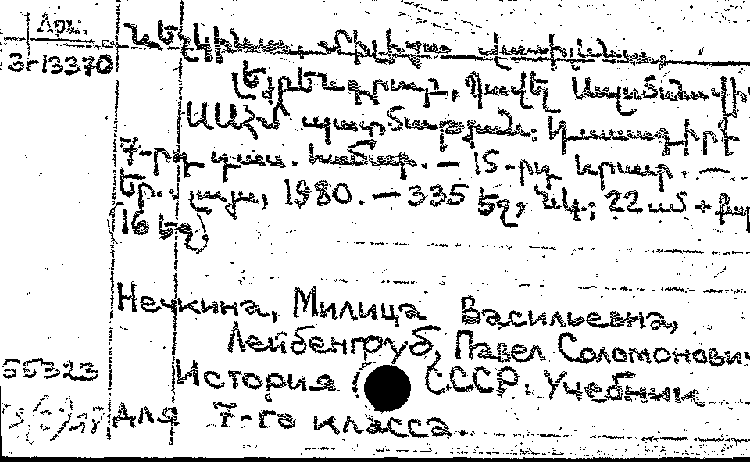 Նեչկինա, Միլիցա Վասիլևնա,
3Г13370
Լեյբենգրուբ, Պավել
ՍՍՀՄ պատմություն: Դասագիրք
7-րդ դաս. համար. — 15-րդ հրատ. —
Եր.: Լույս, 1980. — 335 էջ, նկ.; 22 սմ +
(16 էջ)
Нечкина, Милица Васильевна,
Лейбенгруб, Павел Соломонович
55323 История СССР. Учебник
для 7-го класса.